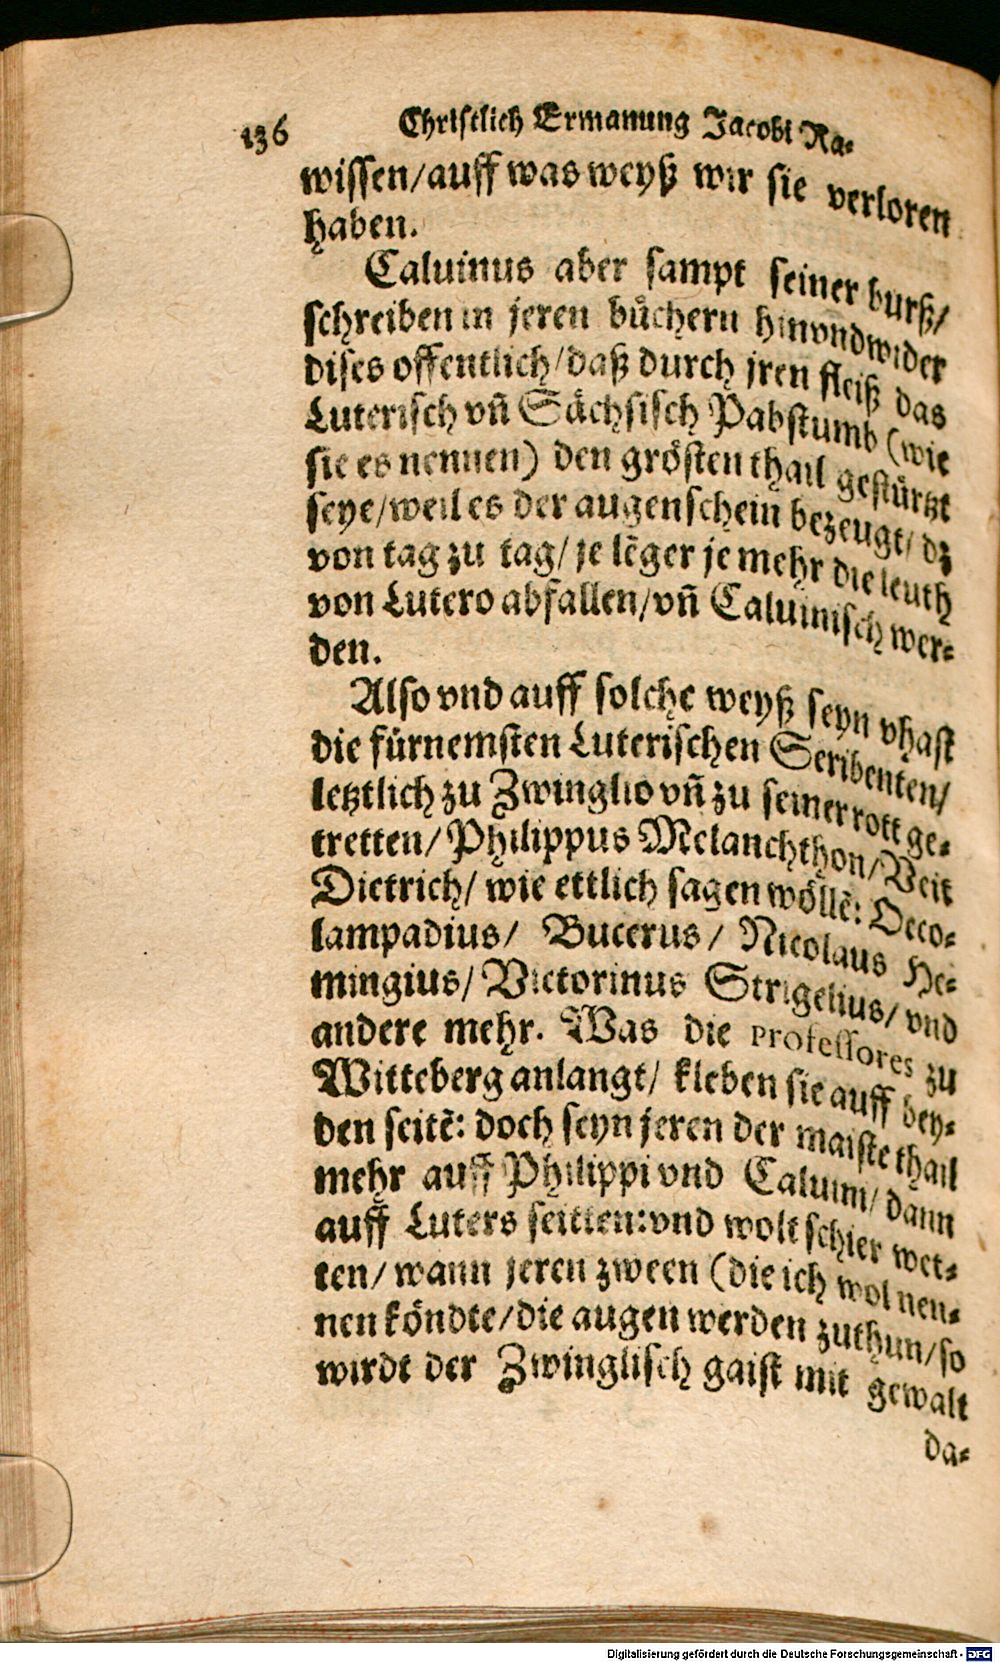 136 Christlich Ermanung Jacobi Ra⸗
wissen/auff was weyß wir sie verloren
haben.
Caluinus aber sampt seiner burß/
schreiben in jeren bůchern hinvndwider
dises offentlich/daß durch jren fleiß das
Luterisch vñ Sächsisch Pabstumb (wie
sie es nennen) den grösten thail gestürtzt
seye/weil es der augenschein bezeugt/ dz
von tag zu tag/ je lẽger je mehr die leuth
von Lutero abfallen/vñ Caluinisch wer⸗
den.
Also vnd auff solche weyß seyn vhast
die fürnemsten Luterischen Scribenten/
letztlich zu Zwinglio vñ zu seiner rott ge⸗
tretten/ Philippus Melanchthon/Veit
Dietrich/ wie ettlich sagen wöllẽ: Oeco⸗
lampadius/ Bucerus/ Nicolaus He⸗
mingius/ Victorinus Strigelius/ vnd
andere mehr. Was die Professores zu
Witteberg anlangt/ kleben sie auff bey⸗
den seitẽ: doch seyn jeren der maiste thail
mehr auff Philippi vnd Caluini/ dann
auff Luters seitten: vnd wolt schier wet⸗
ten/ wann jeren zween (die ich wol nen⸗
nen köndte/die augen werden zuthun/so
wirdt der Zwinglisch gaist mit gewalt
da⸗
Digitalisierung gefördert durch die Deutsche Forschungsgemeinschaft - DFG